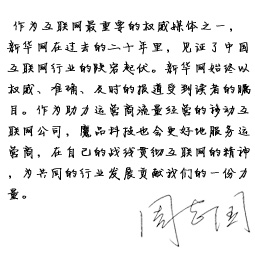 作为互联网最重要的权威媒体之一，
新华网在过去的二十年里，见证了中国
互联网行业的跌宕起伏。新华网始终以
权威、准确、及时的报道受到读者的瞩
目。作为助力运营商流量经营的移动互
联网公司，魔品科技也会更好地服务运
营商，在自己的战线贯彻互联网的精神
，为共同的行业发展贡献我们的一份力
量。
周志国